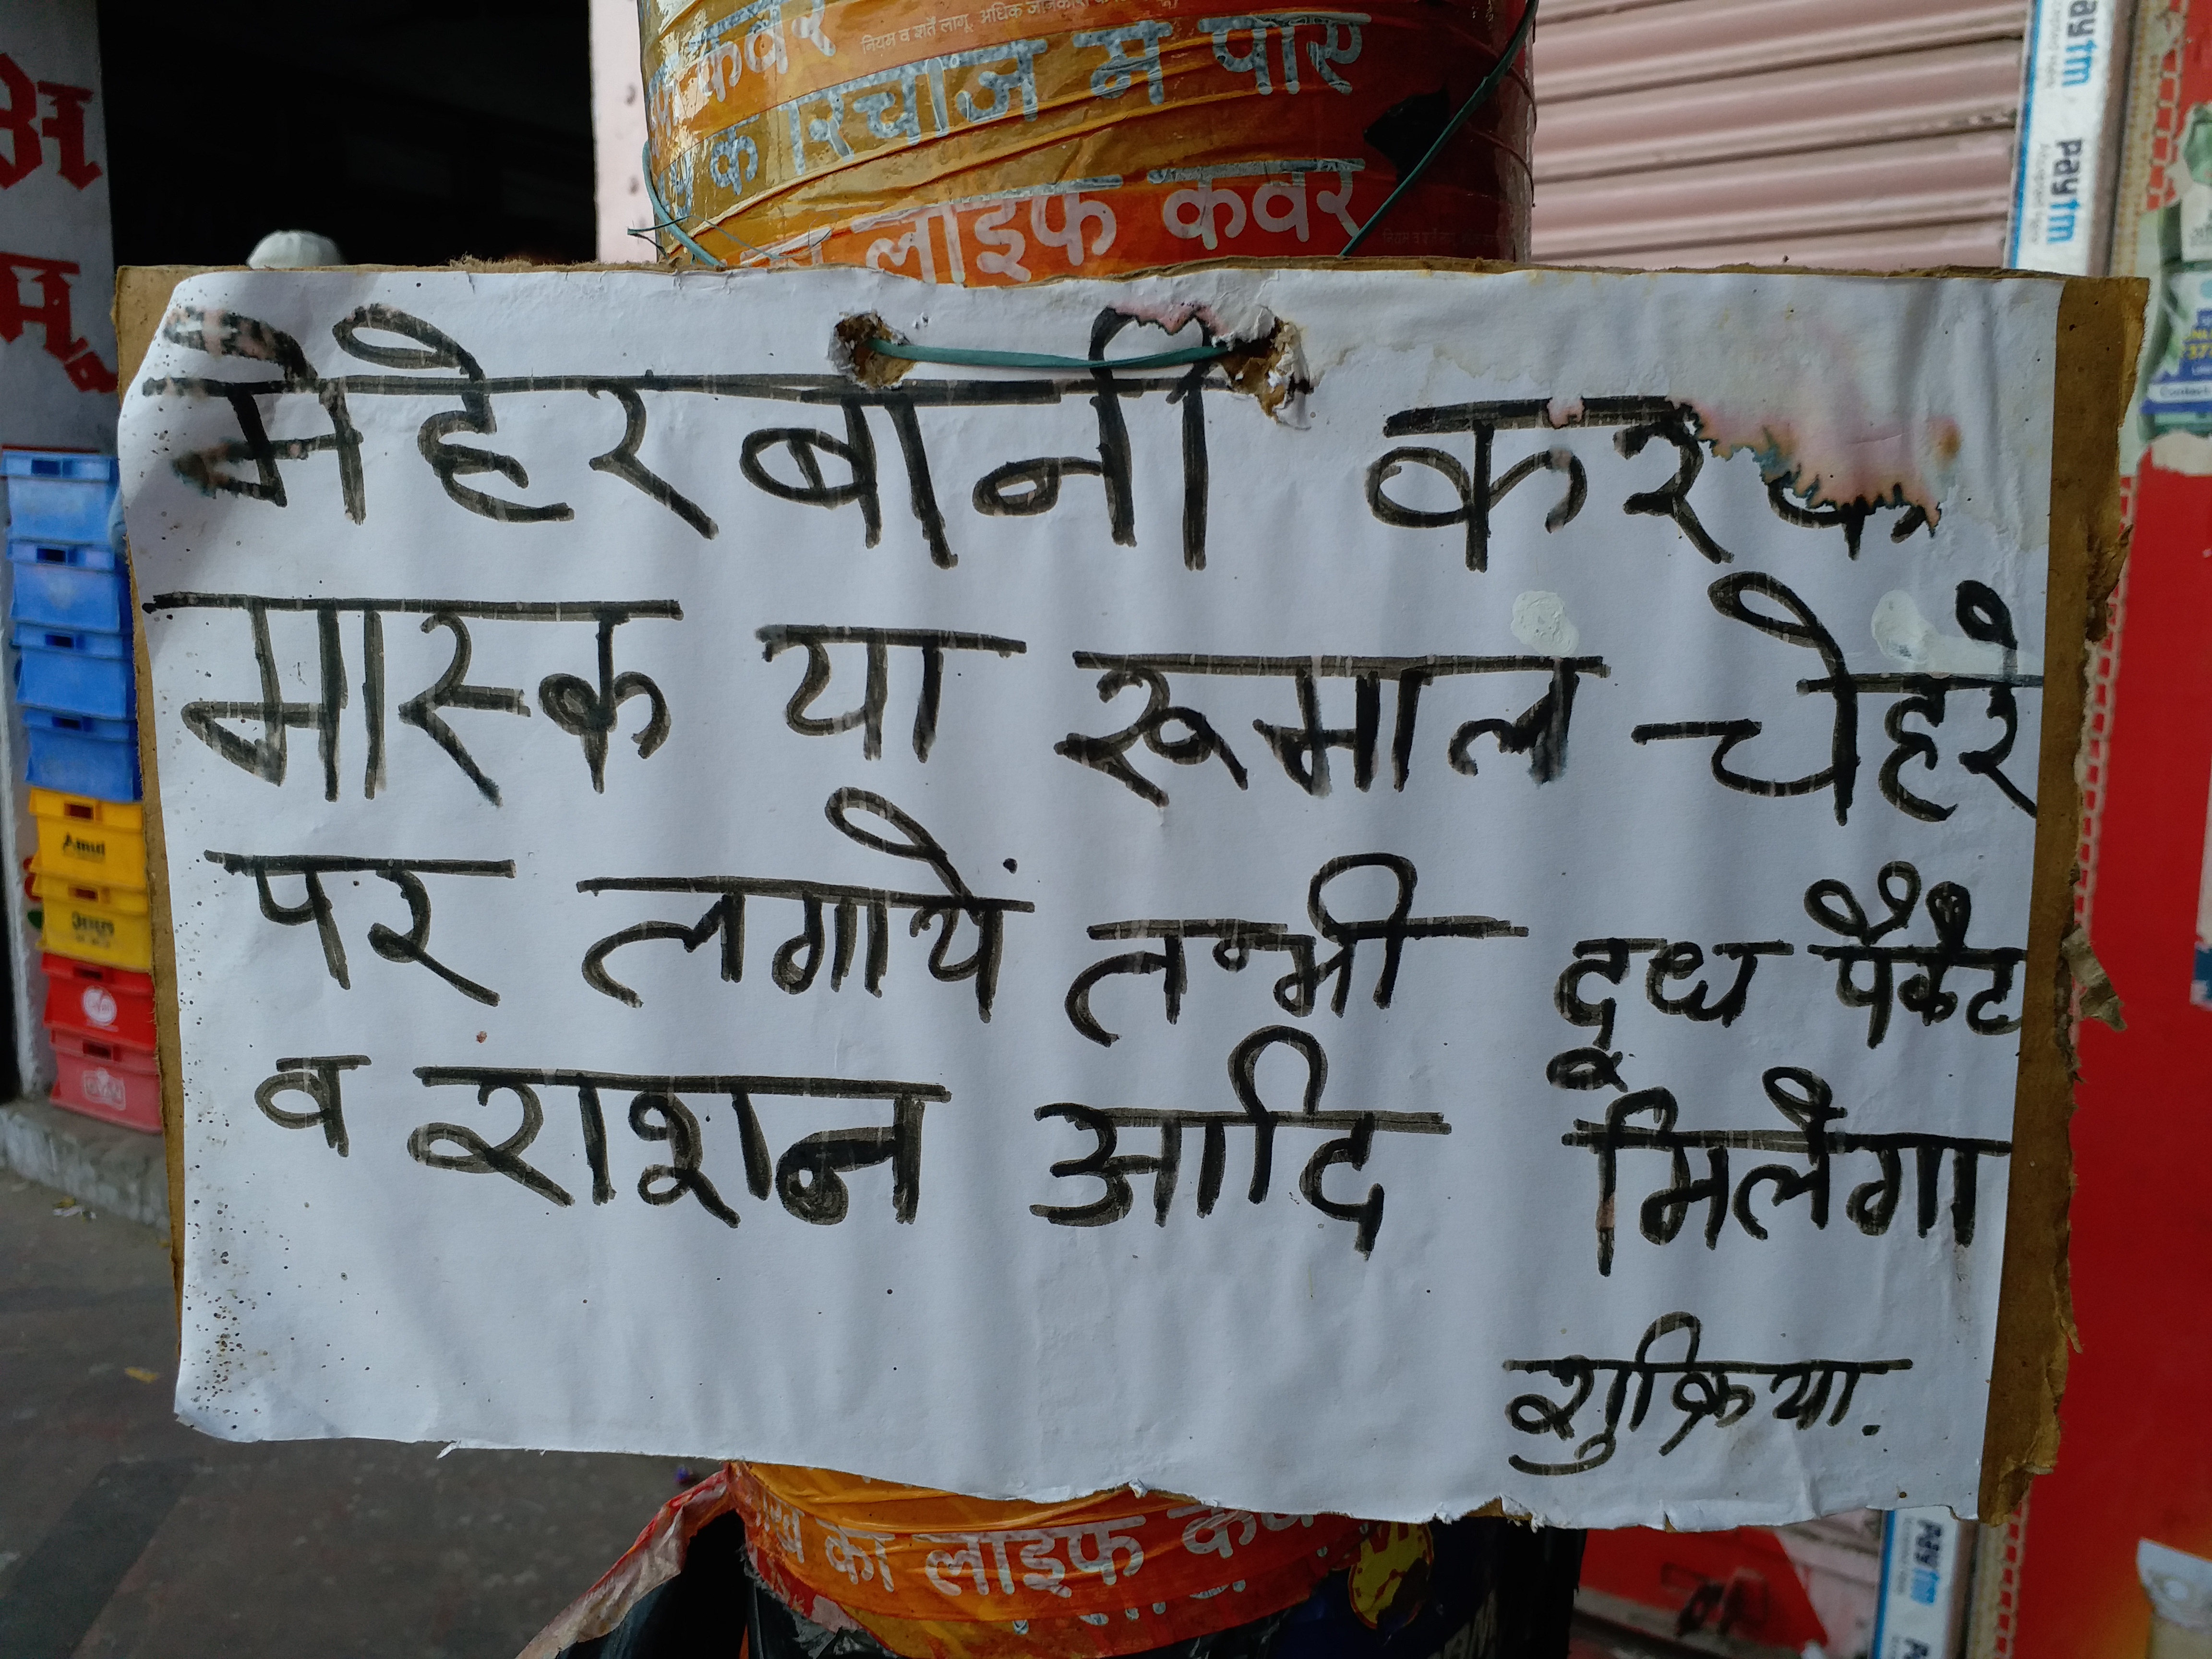 कवर
नियम व शर्तें लागू.
के रिचार्ज में पाएं
लाइफ कवर
मेहेरबानी करके
मास्क या रूमाल चेहरे
पर लगायें तभी दूध पैकेट
व राशन आदि मिलेगा
शुक्रिया.
का लाइफ कवर
Paytm
Paytm
Paytm
Paytm
Amul